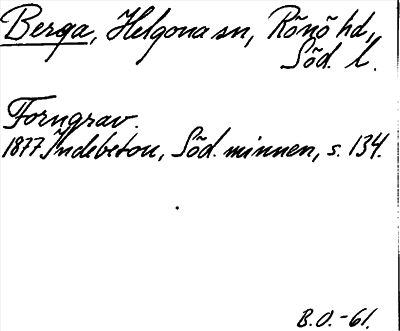 Berga, Helgona sn, Rönö hd,
Söd. l.
Forngrav.
1877 Indebetou, Söd. minnen, s. 134.
B.O.-61.